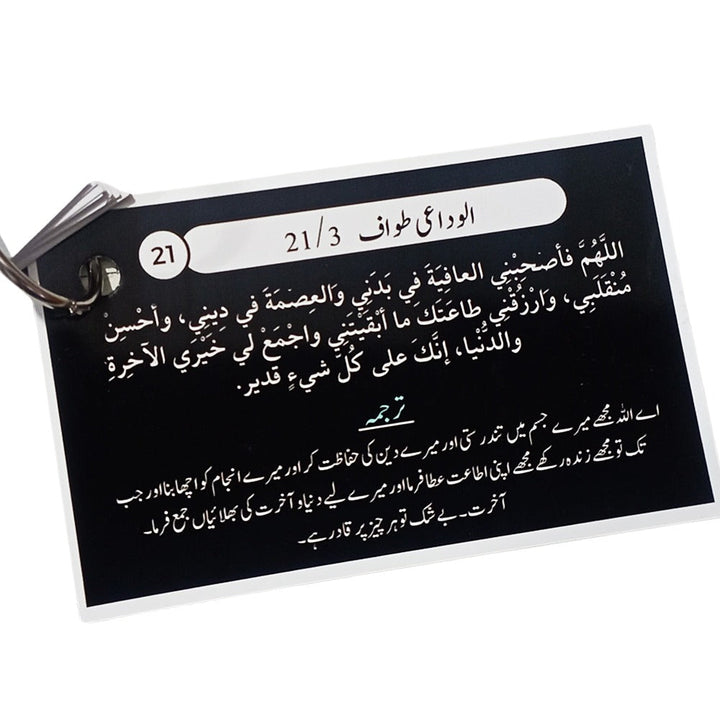 الوداعی طواف 21/3
21
اللَّهُمَّ فأصْحِبْنِي العافِيَةَ فِي بَدَنِي وَالعِصْمَةَ في دِينِي، وأحْسِنْ
مُنْقَلَبِي، وَارْزُقْنِي طاعَتَكَ ما أبْقَيْتَنِي واجْمَعْ لي خَيْرَي الآخِرةِ
والدُّنْيا، إنَّكَ على كُلّ شيءٍ قدير.
ترجمہ
اے اللہ مجھے میرے جسم میں تندرستی اور میرے دین کی حفاظت کر اور میرے انجام کو اچھا بنا اور جب
تک تو مجھے زندہ رکھے مجھے اپنی اطاعت عطا فرما اور میرے لیے دنیا و آخرت کی بھلائیاں جمع فرما۔
آخرت۔ بے شک تو ہر چیز پر قادر ہے۔